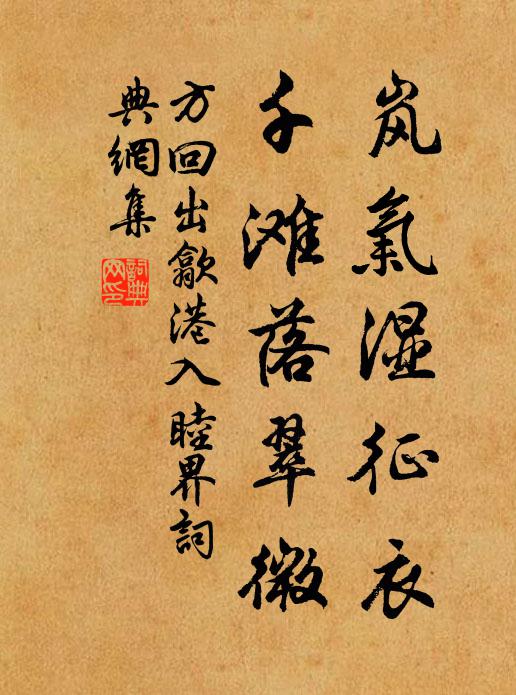 岚氣湿征衣
千滩落翠微
方回出歙港入睦界詞
典網集
詞典
网印